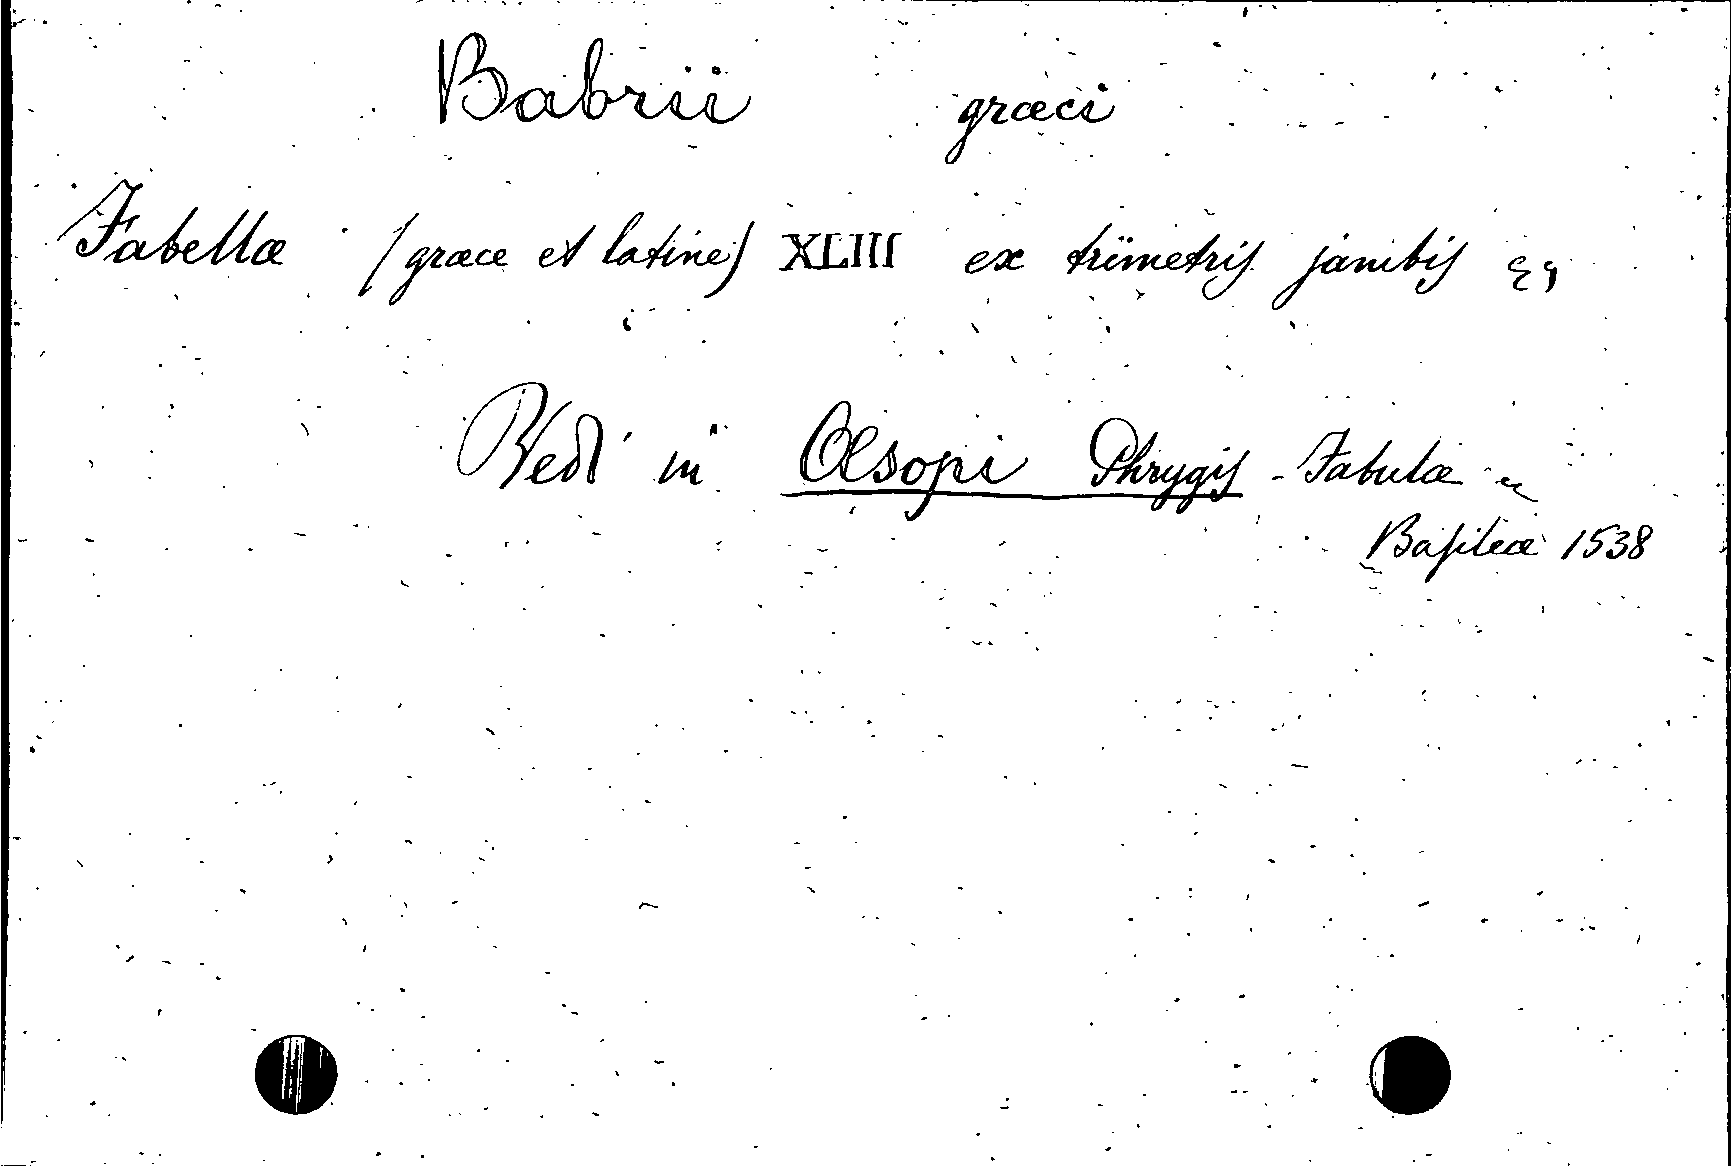 Babrii græci
Fabellæ (græce et latine) XLIII ex trimetris jambis
Vedi in Æsopi Phrygis - Fabulæ
Basileæ 1538